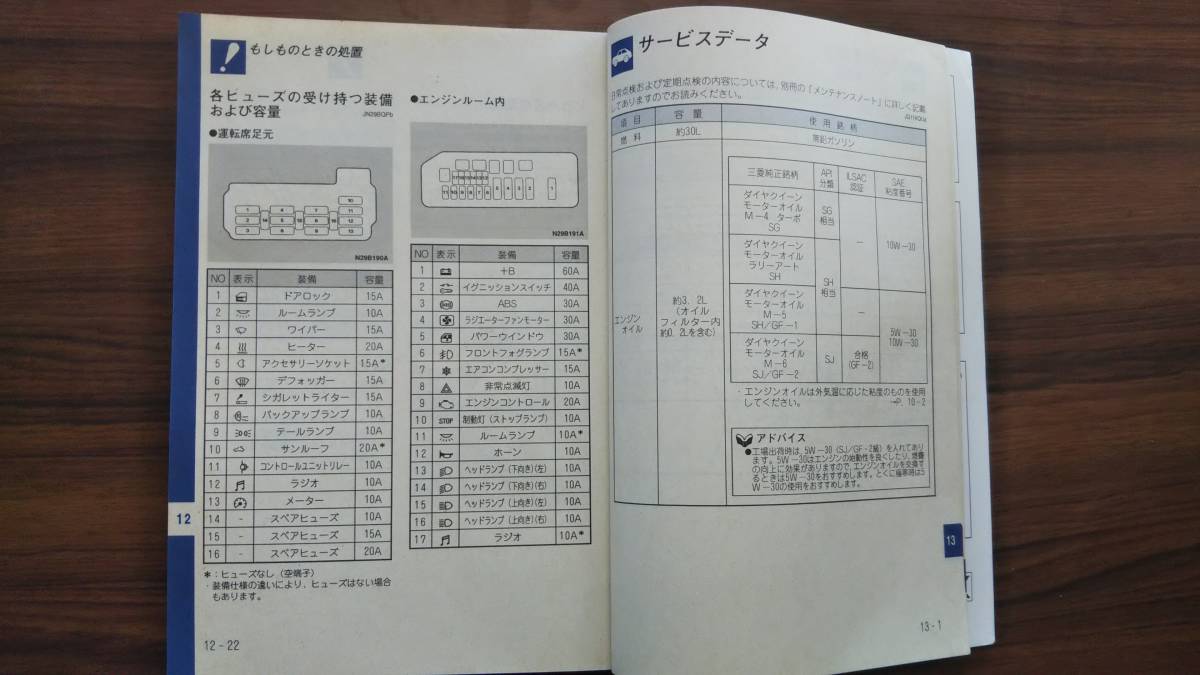 もしものときの処置
各ヒューズの受け持つ装備
および容量
JN29BQPb
●運転席足元
N29B190A
NO 表示 装備 容量
1 ドアロック 15A
2 ルームランプ 10A
3 ワイパー 15A
4 ヒーター 20A
5 アクセサリーソケット 15A*
6 デフォッガー 15A
7 シガレットライター 15A
8 バックアップランプ 10A
9 テールランプ 10A
10 サンルーフ 20A*
11 コントロールユニットリレー 10A
12 ラジオ 10A
13 メーター 10A
14 - スペアヒューズ 10A
15 - スペアヒューズ 15A
16 - スペアヒューズ 20A
*:ヒューズなし(空端子)
・装備仕様の違いにより、ヒューズはない場合
もあります。
12
12-22
●エンジンルーム内
N29B191A
NO 表示 装備 容量
1 +B 60A
2 イグニッションスイッチ 40A
3 ABS 30A
4 ラジエーターファンモーター 30A
5 パワーウインドウ 30A
6 フロントフォグランプ 15A*
7 エアコンコンプレッサー 15A
8 非常点滅灯 10A
9 エンジンコントロール 20A
10 STOP 制動灯(ストップランプ) 10A
11 ルームランプ 10A*
12 ホーン 10A
13 ヘッドランプ(下向き)(左) 10A
14 ヘッドランプ(下向き)(右) 10A
15 ヘッドランプ(上向き)(左) 10A
16 ヘッドランプ(上向き)(右) 10A
17 ラジオ 10A*
サービスデータ
日常点検および定期点検の内容については、別冊の「メンテナンスノート」に詳しく記載
してありますのでお読みください。
項目 容量 使用銘柄
燃料 約30L 無鉛ガソリン
エンジン
オイル
約3.2L
(オイル
フィルター内
約0.2Lを含む)
三菱純正銘柄 API
分類 ILSAC
認証 SAE
粘度番号
ダイヤクイーン
モーターオイル
M-4 ターボ
SG
SG
相当
ダイヤクイーン
モーターオイル
ラリーアート
SH
SH
相当
-
10W-30
ダイヤクイーン
モーターオイル
M-5
SH/GF-1
-
ダイヤクイーン
モーターオイル
M-6
SJ/GF-2
SJ
合格
(GF-2)
5W-30
10W-30
・エンジンオイルは外気温に応じた粘度のものを使用
してください。 →P. 10-2
アドバイス
●工場出荷時は、5W-30(SJ/GF-2級)を入れてあり
ます。5W-30はエンジンの始動性を良くしたり、燃費
の向上に効果がありますので、エンジンオイルを交換す
るときは5W-30をおすすめします。とくに極寒時は5
W-30の使用をおすすめします。
13
13-1